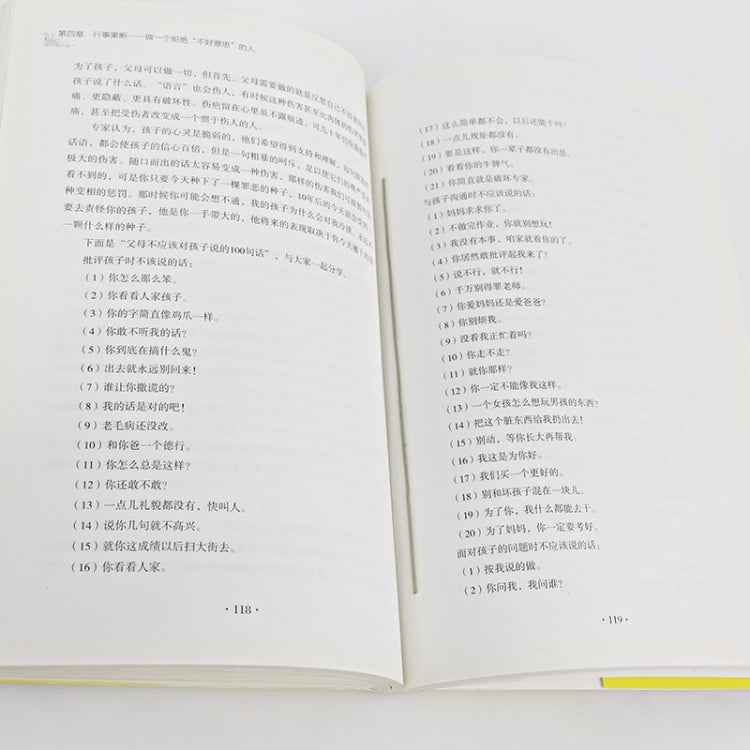 第四章 行事果断——做一个拒绝“不好意思”的人
为了孩子，父母可以做一切，但首先，父母需要做的就是反思自己
孩子说了什么话。“语言”也会伤人，有时候这种伤害甚至比肉体的伤害更
痛、更隐蔽、更具有破坏性。伤疤留在心里虽不露痕迹，可几十年后仍隐隐作
痛，甚至把受伤者改变成一个惯于伤人的人。
专家认为，孩子的心灵是脆弱的，他们希望得到支持和理解，每一句鼓励的
话语，都会使孩子的信心百倍，但是一句粗暴的呵斥，足以使它们的尊严受到
极大的伤害。随口而出的话太容易变成一种伤害，那样的伤害我们可能
看不到的，可是你只要今天种下了一棵罪恶的种子，10年后的今天就会受到
种变相的惩罚。那时候你可能会想不通，我的孩子为什么会对我冷漠，
要去责怪你的孩子，他是你一手带大的，他将来的表现取决于你今天播下的
一颗什么样的种子。
下面是“父母不应该对孩子说的100句话”，与大家一起分享。
批评孩子时不该说的话：
（1）你怎么那么笨。
（2）你看看人家孩子。
（3）你的字简直像鸡爪一样。
（4）你敢不听我的话？
（5）你到底在搞什么鬼？
（6）出去就永远别回来！
（7）谁让你撒谎的？
（8）我的话是对的吧！
（9）老毛病还没改。
（10）和你爸一个德行。
（11）你怎么总是这样？
（12）你还敢不敢？
（13）一点儿礼貌都没有，快叫人。
（14）说你几句就不高兴。
（15）就你这成绩以后扫大街去。
（16）你看看人家。
·118·
（17）这么简单都不会，以后还能干吗？
（18）一点儿规矩都没有。
（19）要是这样，你一辈子都没有出息。
（20）看看你的牛脾气。
（21）你简直就是破坏专家。
与孩子沟通时不应该说的话：
（1）妈妈求求你了。
（2）不做完作业，你就别想玩！
（3）我没有本事，咱家就看你的了。
（4）你居然敢批评起我来了？
（5）说不行，就不行！
（6）千万别得罪老师。
（7）你爱妈妈还是爱爸爸？
（8）你别烦我。
（9）没看我正忙着吗？
（10）你走不走？
（11）就你那样？
（12）你一定不能像我这样。
（13）一个女孩怎么想玩男孩的东西？
（14）把这个脏东西给我扔出去！
（15）别动，等你长大再帮我。
（16）我这是为你好。
（17）我们买一个更好的。
（18）别和坏孩子混在一块儿。
（19）为了你，我什么都能去干。
（20）为了妈妈，你一定要考好。
面对孩子的问题时不应该说的话：
（1）按我说的做。
（2）你问我，我问谁？
·119·